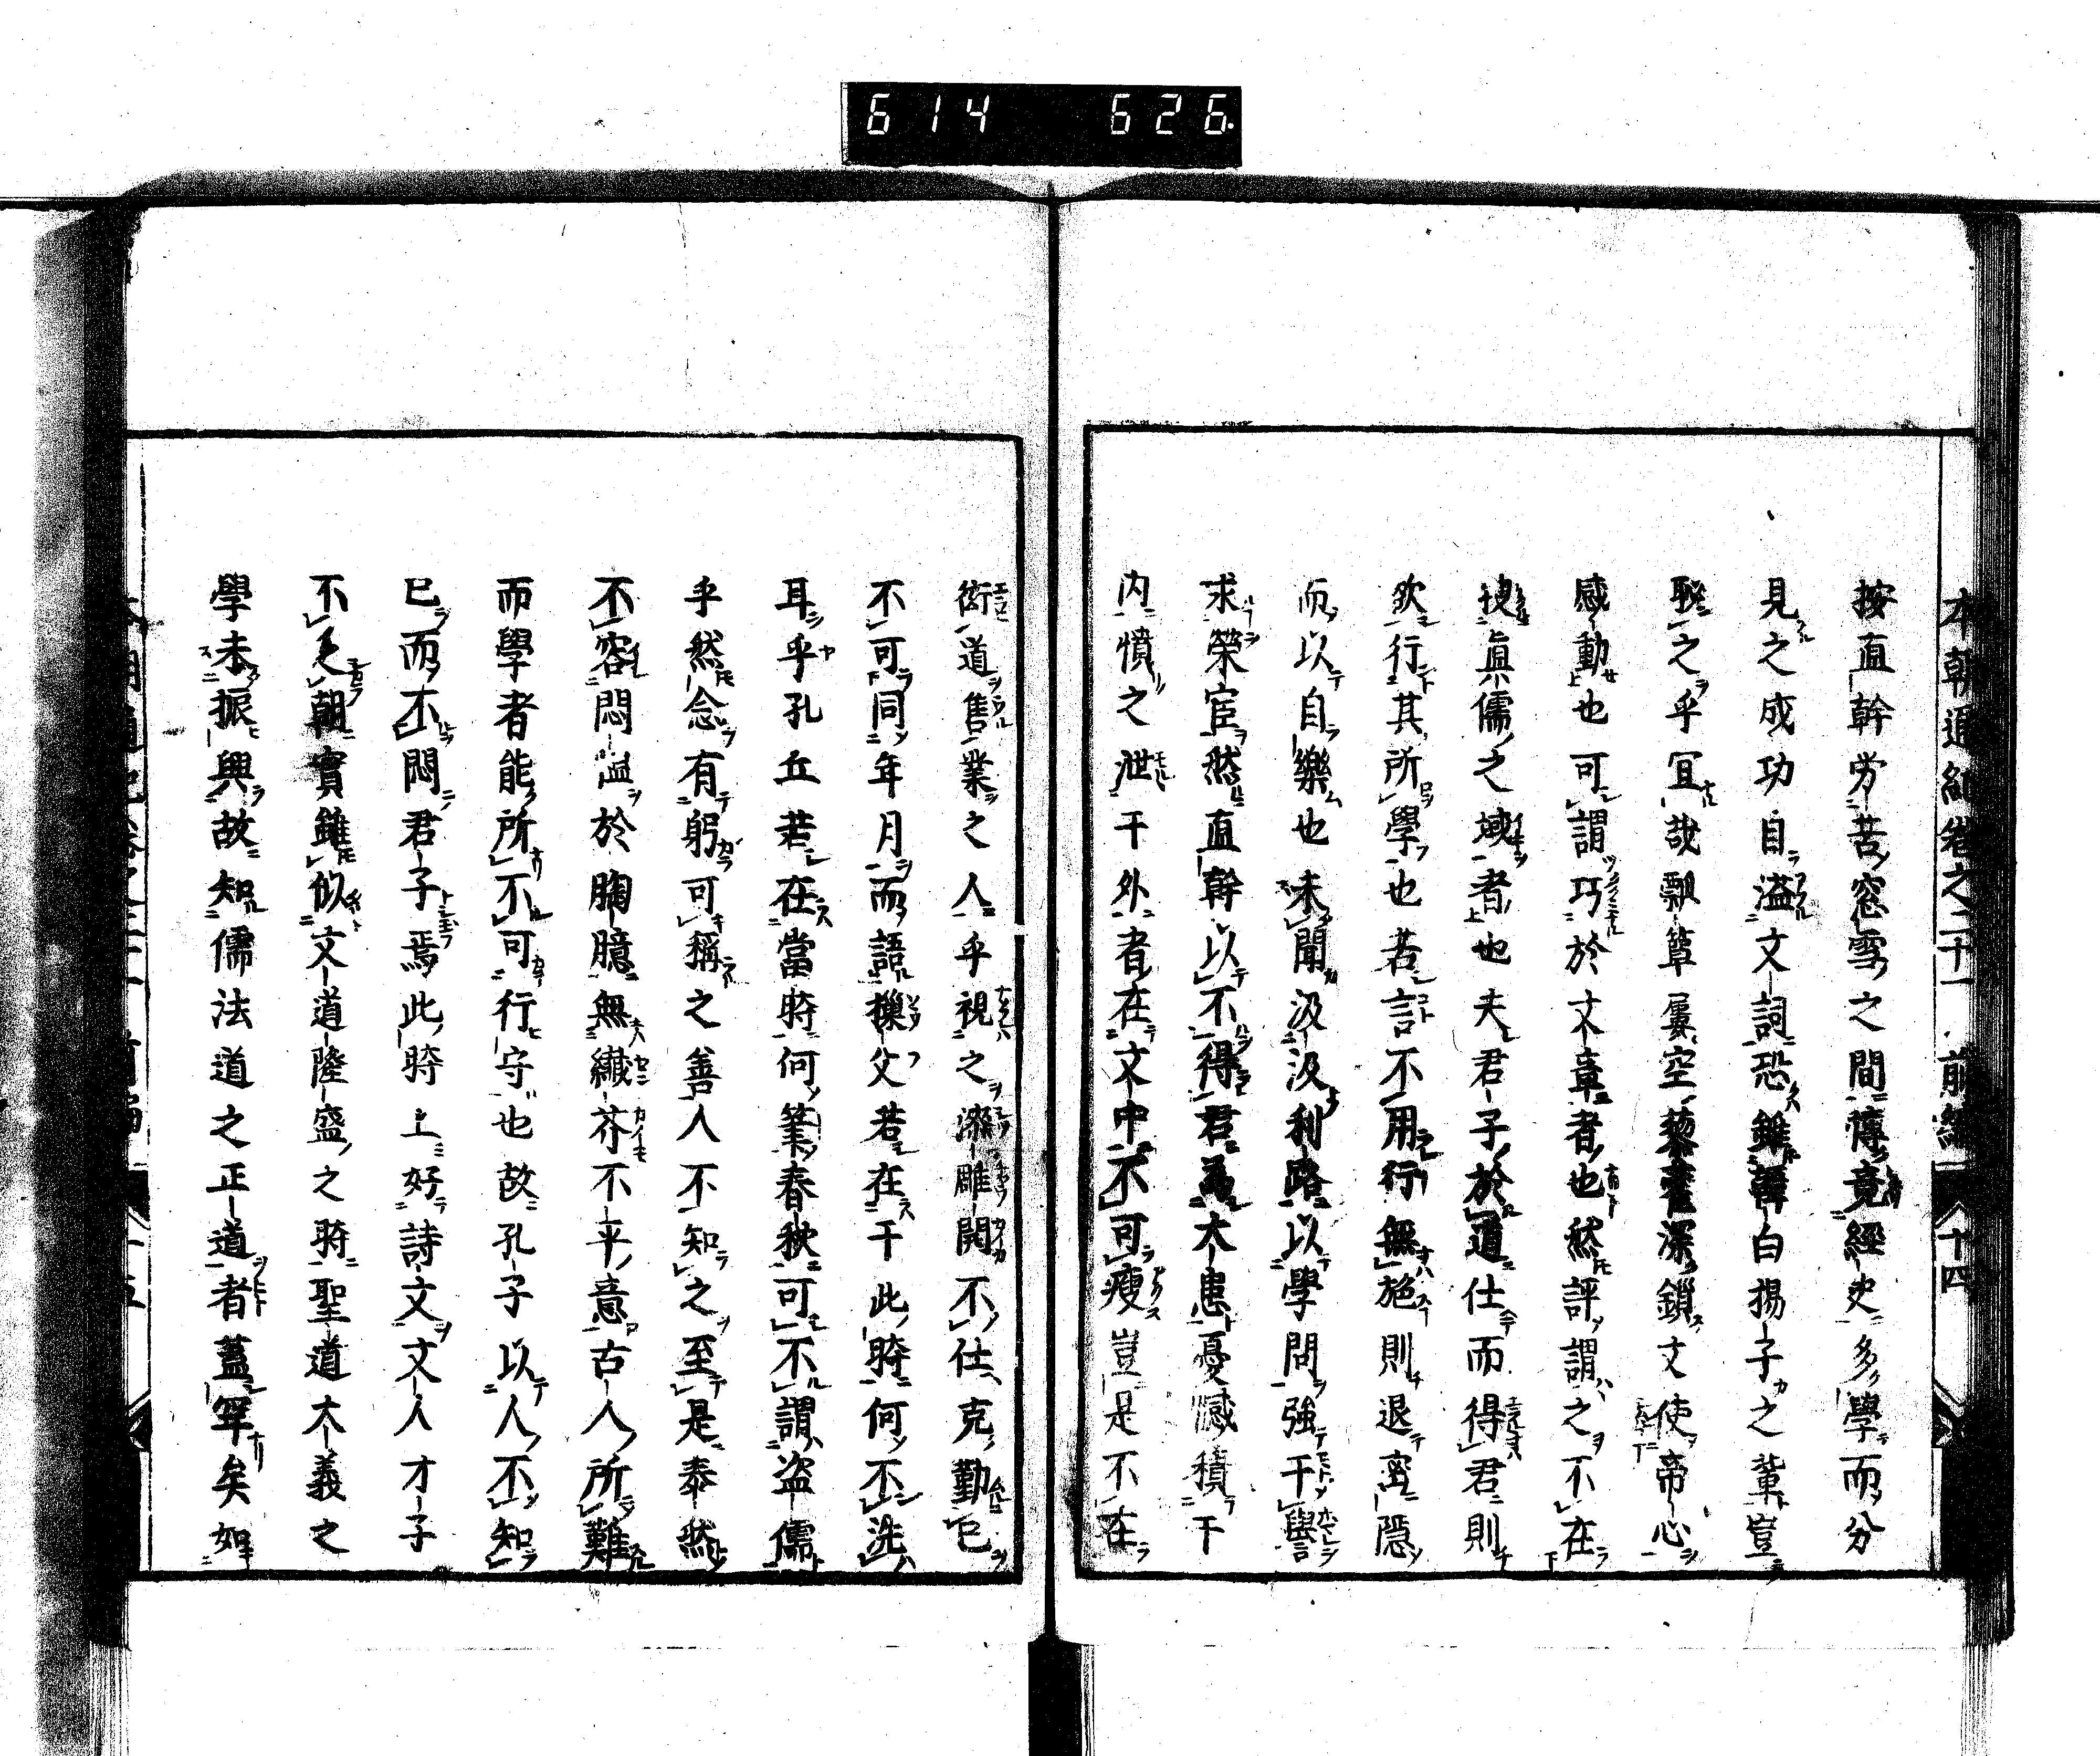 614 626
本朝通紀卷之二十一 前編 十四
按直幹労苦窓雪之間博竟經史多學而分
見之成功自溢文詞恐雖韓白揚子之輩豈
聡之乎冝哉瓢箪屢空藜藿深鎖文使帝心
感動也可謂巧於文章者也然評謂之不在
眞儒之域者也夫君子於道仕而得君則
欲行其所學也若言不用行無施則退密隱
而以自樂也未聞汲汲利路以學問強干譽
求榮宦然直幹以不得君爲大患憂慽積干
内憤之泄干外者在文中不可瘦豈是不在
衒道售業之人乎視之漆雕開不仕克勤己
不可同年月而語摷父若在干此時何不洗
耳乎孔丘若在當時何筆春秋可不謂盗儒
乎然念有躬可稱之善人不知之至是泰然
不容悶慍於胸臆無纎芥不平意古人所難
而學者能所不可行守也故孔子以人不知
已而不悶君子焉此時上好詩文文人才子
不乏朝實雖似文道隆盛之時聖道大義之
學未振興故知儒法道之正道者蓋罕矣如